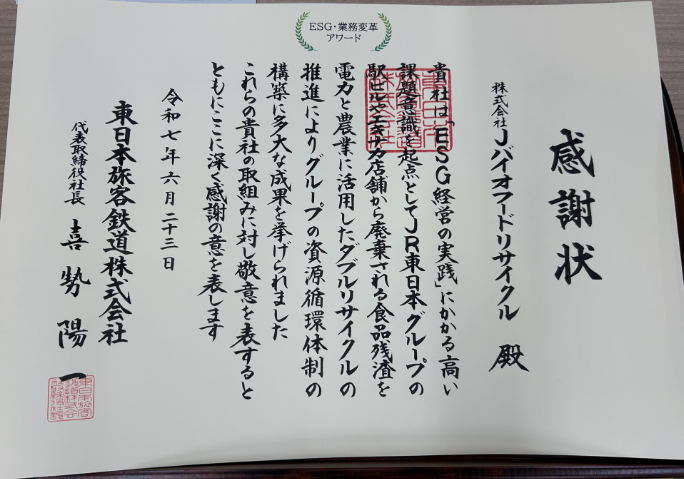 ESG・業務変革
アワード
感謝状
株式会社Jバイオフードリサイクル 殿
貴社は「ESG経営の実践」にかかる高い
課題意識を起点としてJR東日本グループの
駅ビルやエキナカ店舗から廃棄される食品残渣を
電力と農業に活用したダブルリサイクルの
推進によりグループの資源循環体制の
構築に多大な成果を挙げられました
これらの貴社の取組みに対し敬意を表すると
ともにここに深く感謝の意を表します
令和七年六月二十三日
東日本旅客鉄道株式会社
代表取締役社長 喜勢陽一